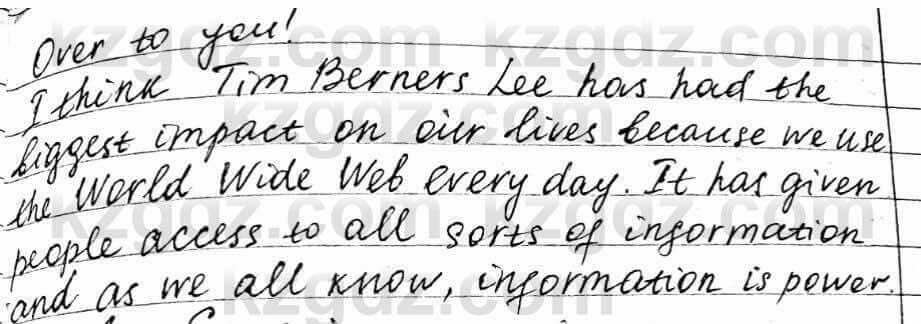 Over to you!
I think Tim Berners Lee has had the
biggest impact on our lives because we use
the World Wide Web every day. It has given
people access to all sorts of information
and as we all know, information is power.
kzgdz.com kzgdz.com
kzgdz.com
kzgdz.com kzgdz.com
kzgdz.com